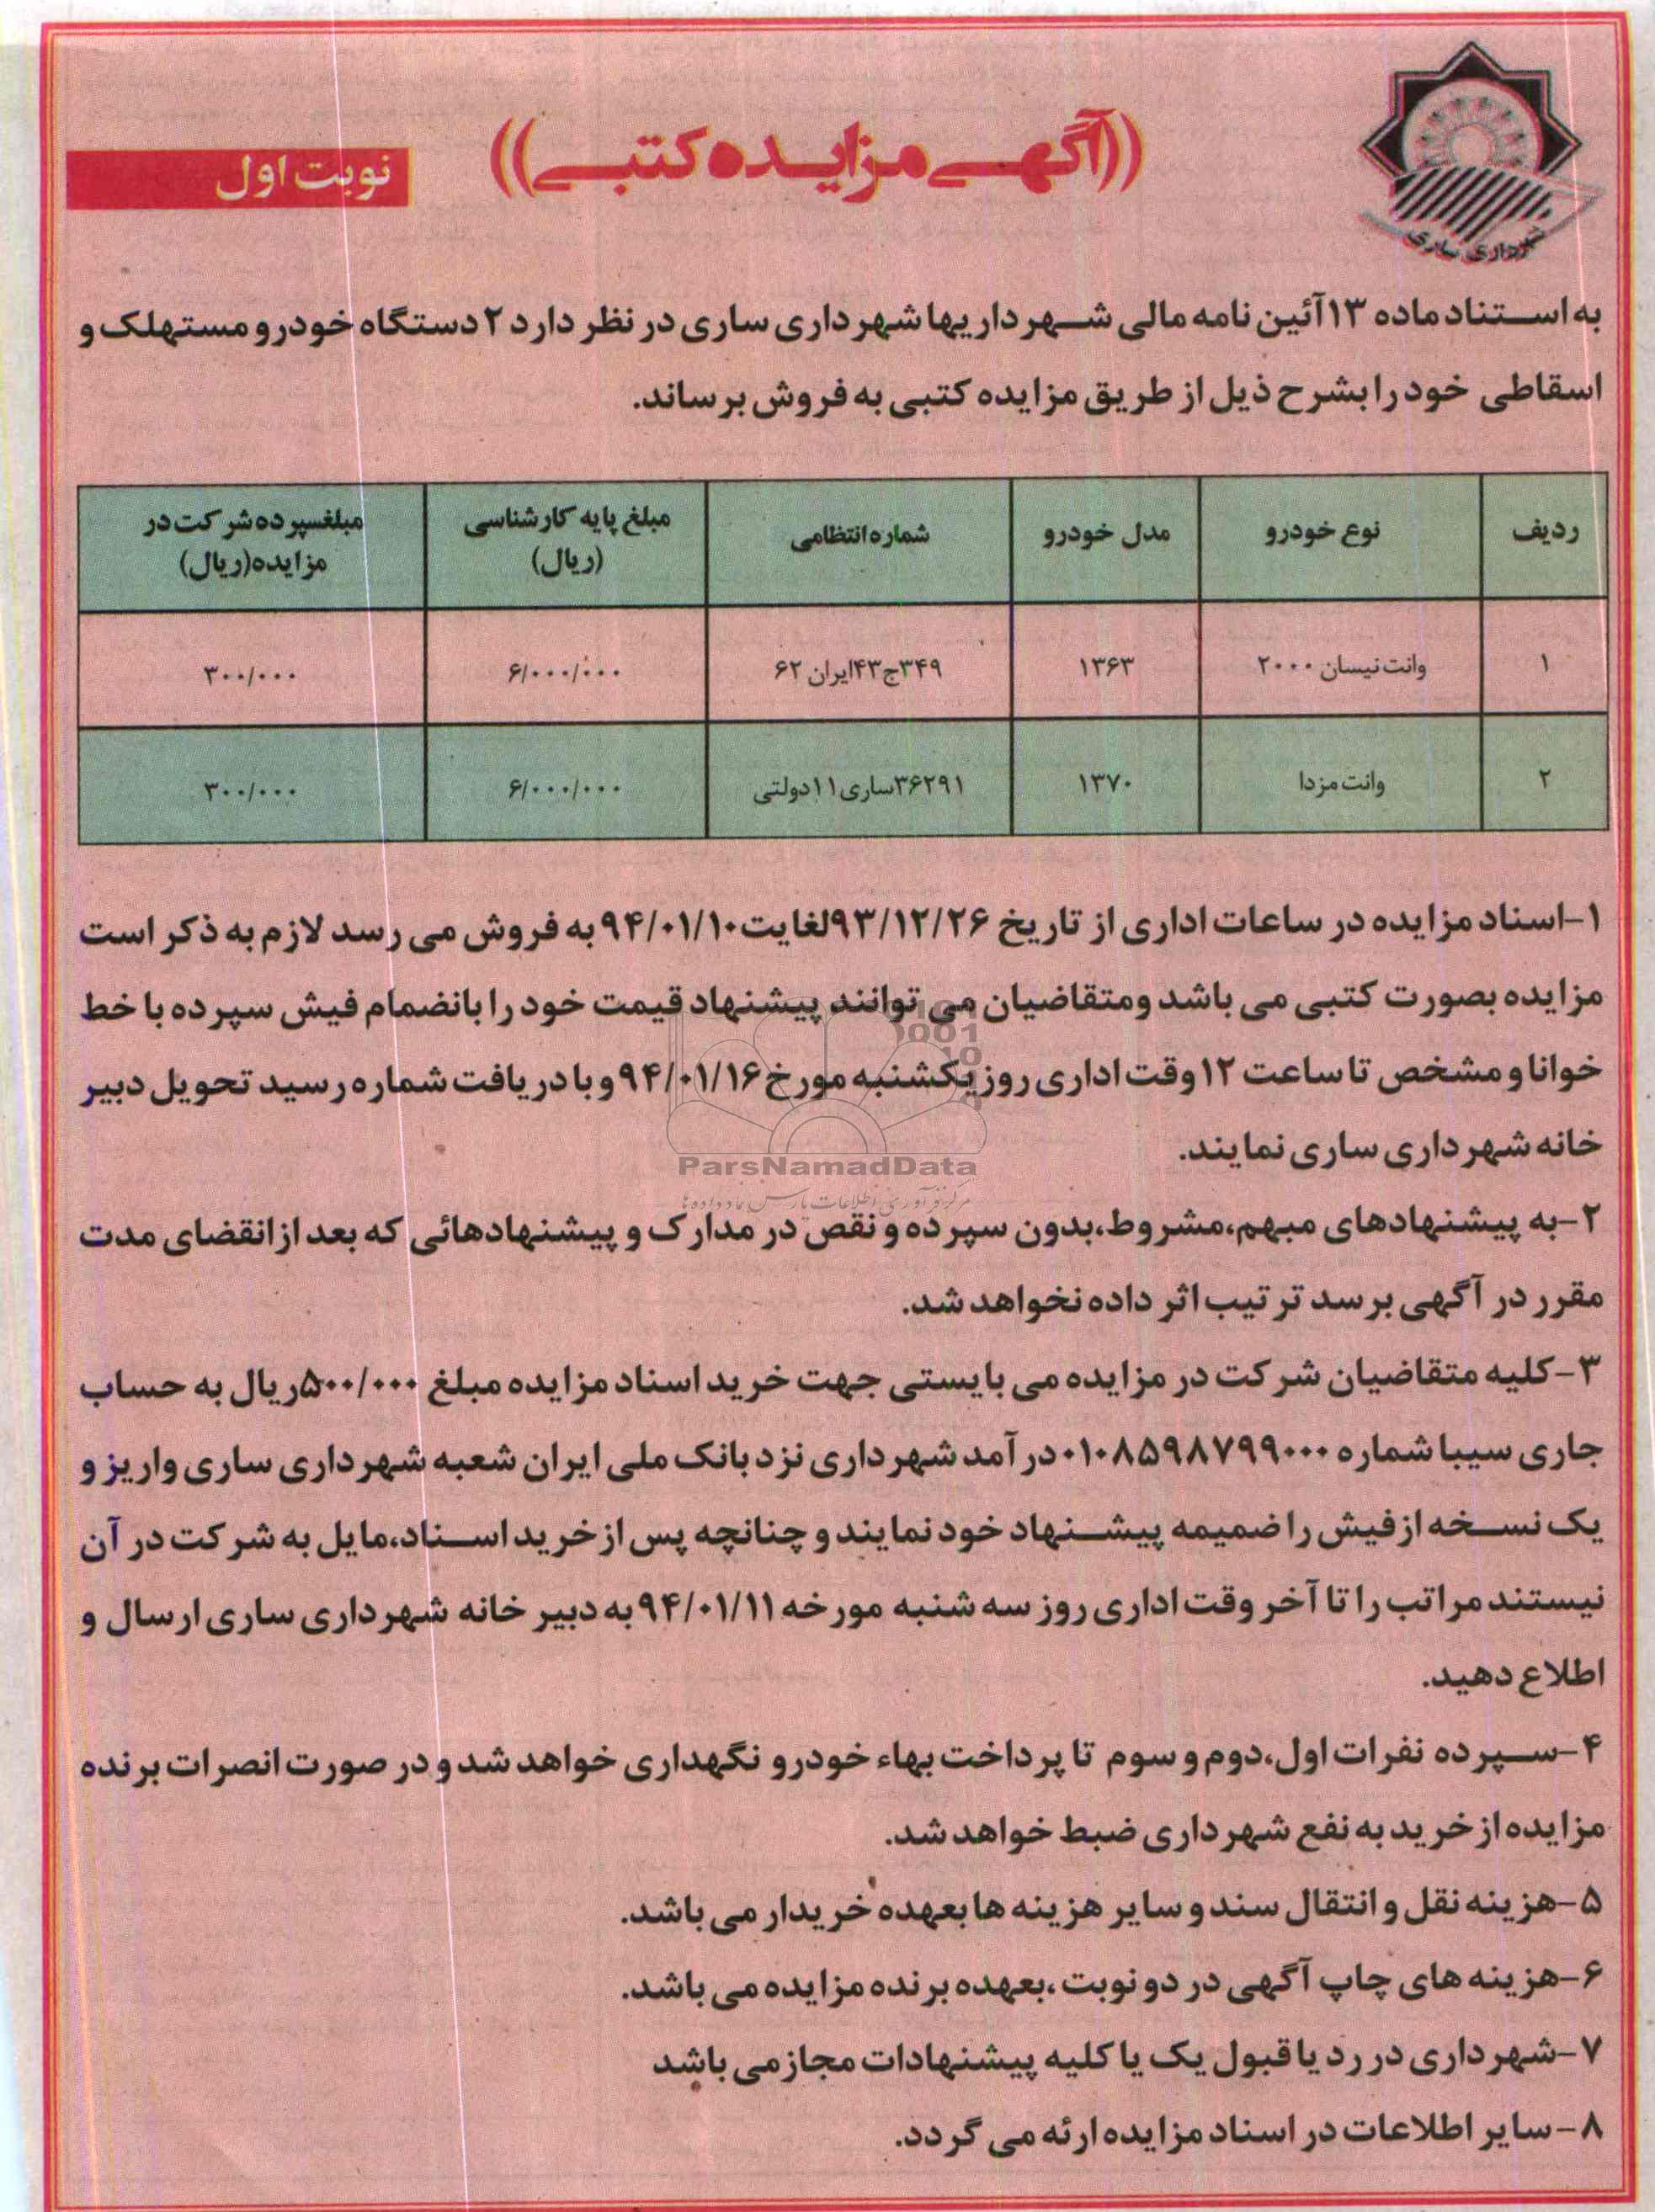 شهرداری ساری
((آگهی مزایده کتبی))
نوبت اول
به استناد ماده ۱۳ آئین نامه مالی شهرداریها شهرداری ساری در نظر دارد ۲ دستگاه خودرو مستهلک و
اسقاطی خود را بشرح ذیل از طریق مزایده کتبی به فروش برساند.
ردیف نوع خودرو مدل خودرو شماره انتظامی مبلغ پایه کارشناسی (ریال) مبلغسپرده شرکت در مزایده(ریال)
۱ وانت نیسان ۲۰۰۰ ۱۳۶۳ ۳۴۹ج۴۳ایران ۶۲ ۶/۰۰۰/۰۰۰ ۳۰۰/۰۰۰
۲ وانت مزدا ۱۳۷۰ ۳۶۲۹۱ساری۱۱دولتی ۶/۰۰۰/۰۰۰ ۳۰۰/۰۰۰
۱-اسناد مزایده در ساعات اداری از تاریخ ۹۳/۱۲/۲۶لغایت۹۴/۰۱/۱۰به فروش می رسد لازم به ذکر است
مزایده بصورت کتبی می باشد ومتقاضیان می توانند پیشنهاد قیمت خود را بانضمام فیش سپرده با خط
خوانا و مشخص تا ساعت ۱۲ وقت اداری روز یکشنبه مورخ ۹۴/۰۱/۱۶ و با دریافت شماره رسید تحویل دبیر
خانه شهرداری ساری نمایند.
ParsNamadData
مرکز فرآوری اطلاعات پارس نماد داده ها
۲-به پیشنهادهای مبهم،مشروط،بدون سپرده و نقص در مدارک و پیشنهادهائی که بعد از انقضای مدت
مقرر در آگهی برسد ترتیب اثر داده نخواهد شد.
۳-کلیه متقاضیان شرکت در مزایده می بایستی جهت خرید اسناد مزایده مبلغ ۵۰۰/۰۰۰ریال به حساب
جاری سیبا شماره ۰۱۰۸۵۹۸۷۹۹۰۰۰ درآمد شهرداری نزد بانک ملی ایران شعبه شهرداری ساری واریز و
یک نسخه از فیش را ضمیمه پیشنهاد خود نمایند و چنانچه پس از خرید اسناد،مایل به شرکت در آن
نیستند مراتب را تا آخر وقت اداری روز سه شنبه مورخه ۹۴/۰۱/۱۱ به دبیر خانه شهرداری ساری ارسال و
اطلاع دهید.
۴-سپرده نفرات اول،دوم و سوم تا پرداخت بهاء خودرو نگهداری خواهد شد و در صورت انصرات برنده
مزایده از خرید به نفع شهرداری ضبط خواهد شد.
۵-هزینه نقل و انتقال سند و سایر هزینه ها بعهده خریدار می باشد.
۶-هزینه های چاپ آگهی در دو نوبت ،بعهده برنده مزایده می باشد.
۷-شهرداری در رد یا قبول یک یا کلیه پیشنهادات مجاز می باشد
۸-سایر اطلاعات در اسناد مزایده ارئه می گردد.